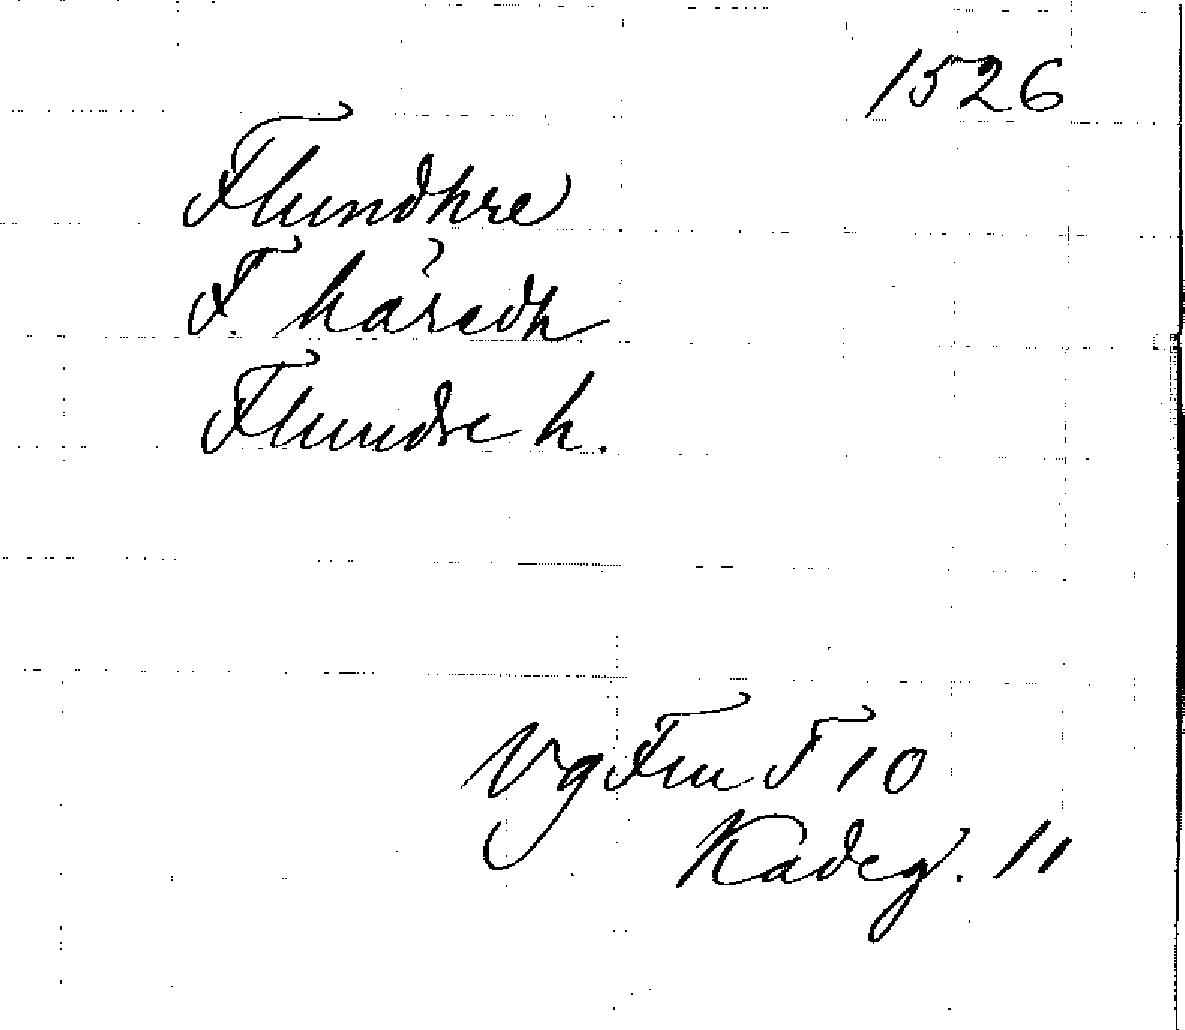 1526
Flundhre
F. håredh
Flundre h.
Vg Fru T 10
Kadeg. 11